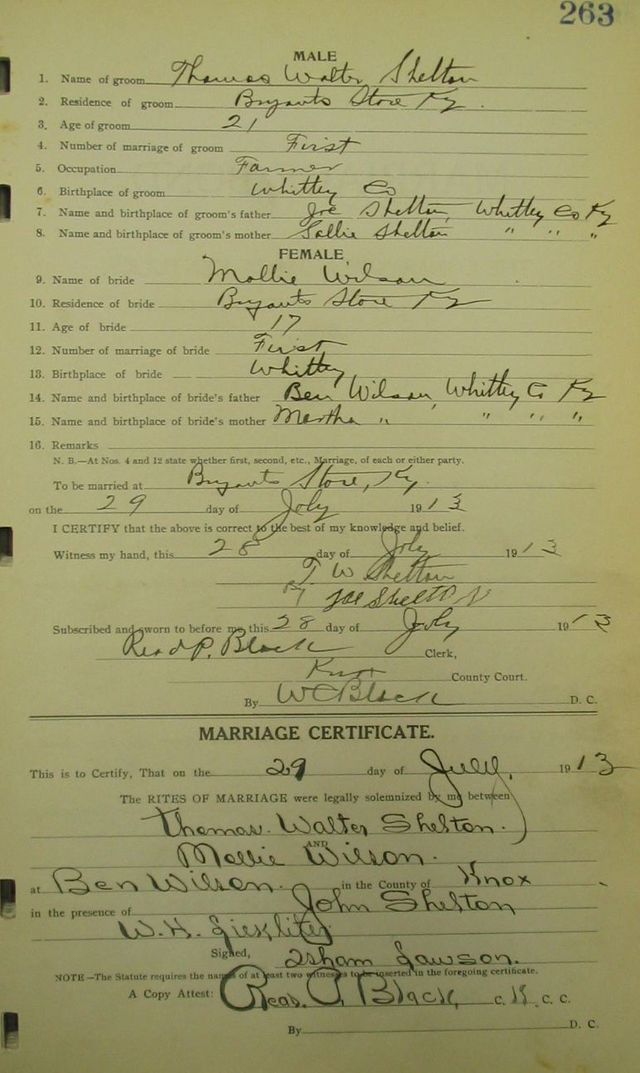 263
MALE
1. Name of groom Thomas Walter Shelton
2. Residence of groom Bryants Store Ky.
3. Age of groom 21
4. Number of marriage of groom First
5. Occupation Farmer
6. Birthplace of groom Whitley Co
7. Name and birthplace of groom's father Joe Shelton, Whitley Co Ky
8. Name and birthplace of groom's mother Sallie Shelton " " "
FEMALE
9. Name of bride Mollie Wilson
10. Residence of bride Bryants Store Ky
11. Age of bride 17
12. Number of marriage of bride First
13. Birthplace of bride Whitley
14. Name and birthplace of bride's father Ben Wilson, Whitley Co Ky
15. Name and birthplace of bride's mother Martha " " " "
16. Remarks
N. B.—At Nos. 4 and 12 state whether first, second, etc., Marriage, of each or either party.
To be married at Bryants Store, Ky.
on the 29 day of July 1913
I CERTIFY that the above is correct to the best of my knowledge and belief.
Witness my hand, this 28 day of July 1913
T W Shelton
Joe Shelton
Subscribed and sworn to before me this 28 day of July 1913
Read P. Black Clerk,
Knox County Court.
By W C Black D. C.
MARRIAGE CERTIFICATE.
This is to Certify, That on the 29 day of July, 1913
The RITES OF MARRIAGE were legally solemnized by me between
Thomas. Walter Shelton.
AND
Mollie Wilson.
at Ben Wilson. in the County of Knox
in the presence of John Shelton
W. H.
Signed, Isham Lawson.
NOTE—The Statute requires the names of at least two witnesses to be inserted in the foregoing certificate.
A Copy Attest: Read P. Black C. K. C. C.
By D. C.